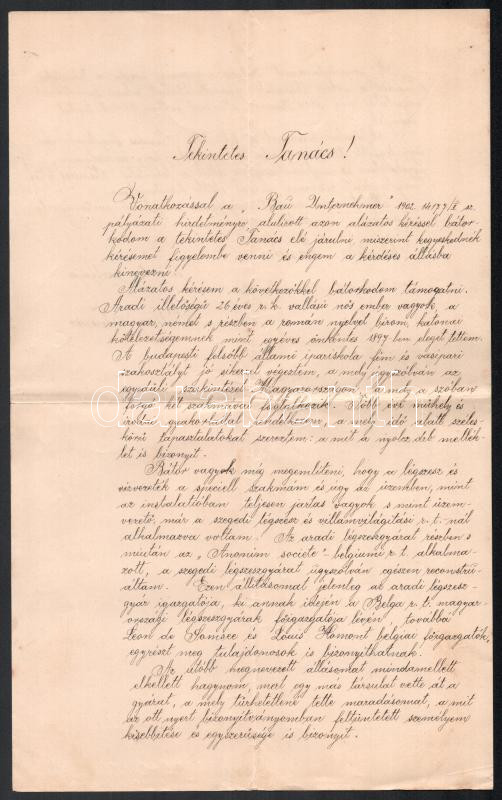 Tekintetes Tanács!
Vonatkozással a „Bau Unternehmer" 1902. sz.
pályázati hirdetményre, alulirott azon alázatos kéréssel bátor-
kodom a tekintetes Tanács elé járulni miszerint kegyeskednék
kérésemet figyelembe venni és engem a kérdéses állásba
kinevezni.
Alázatos kérésem a következőkkel bátorkodom támogatni.
Aradi illetőségű 26 éves r. k. vallásu nős ember vagyok, a
magyar, német s részben a román nyelvet birom, katonai
kötelezettségemnek mint egyéves önkéntes 1897-ben eleget tettem.
A budapesti felsőbb állami ipariskola fém és vasipari
szakosztályt jó sikerrel végeztem, a mely úgyszólván az
egyedüli szakintézet Magyarországon, a mely a szóban
forgó két szakmával foglalkozik. Több évi műhely és
irodai gyakorlattal rendelkezem, a mely idő alatt széles-
körű tapasztalatokat szereztem: a mit a nyolcz db mellék-
let is bizonyit.
Bátor vagyok még megemliteni, hogy a légszesz és
vizvezeték a speciell szakmám és úgy az üzemben, mint
az installatióban teljesen jártas vagyok s mint üzem-
vezető, már a szegedi légszesz és villámvilágitási r. t.-nál
alkalmazva voltam. Az aradi légszeszgyárat részben s
miután az „Anonim societe" belgiumi r. t. alkalma-
zott, a szegedi légszeszgyárat úgyszólván egészen reconstru-
áltam. Ezen állitásomat jelenleg az aradi légszesz-
gyár igazgatója, ki annak idején a Belga r. t. magyar-
országi légszeszgyárak főigazgatója lévén, továbbá
Léon de Somsee és Louis Homont belgiai főigazgatók,
egyrészt meg tulajdonosok is bizonyithatnak.
Az utóbb megnevezett állásomat mindamellett
el kellett hagynom, mert egy más társulat vette át a
gyárat, a mely tűrhetetlenné tette maradásomat, a mit
az ott nyert bizonyitványomban feltüntetett személyem
kisebbitése és egyszerűsége is bizonyit.